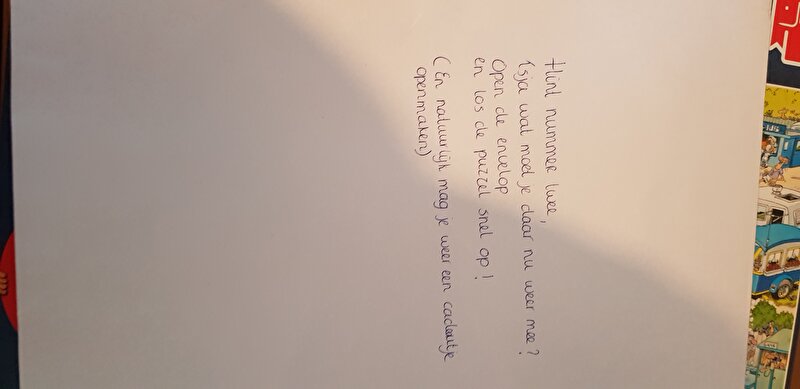 Hint nummer twee,
Tsja wat moet je daar nu weer mee?
Open de envelop
en los de puzzel snel op!
(En natuurlijk mag je weer een cadeautje
openmaken)